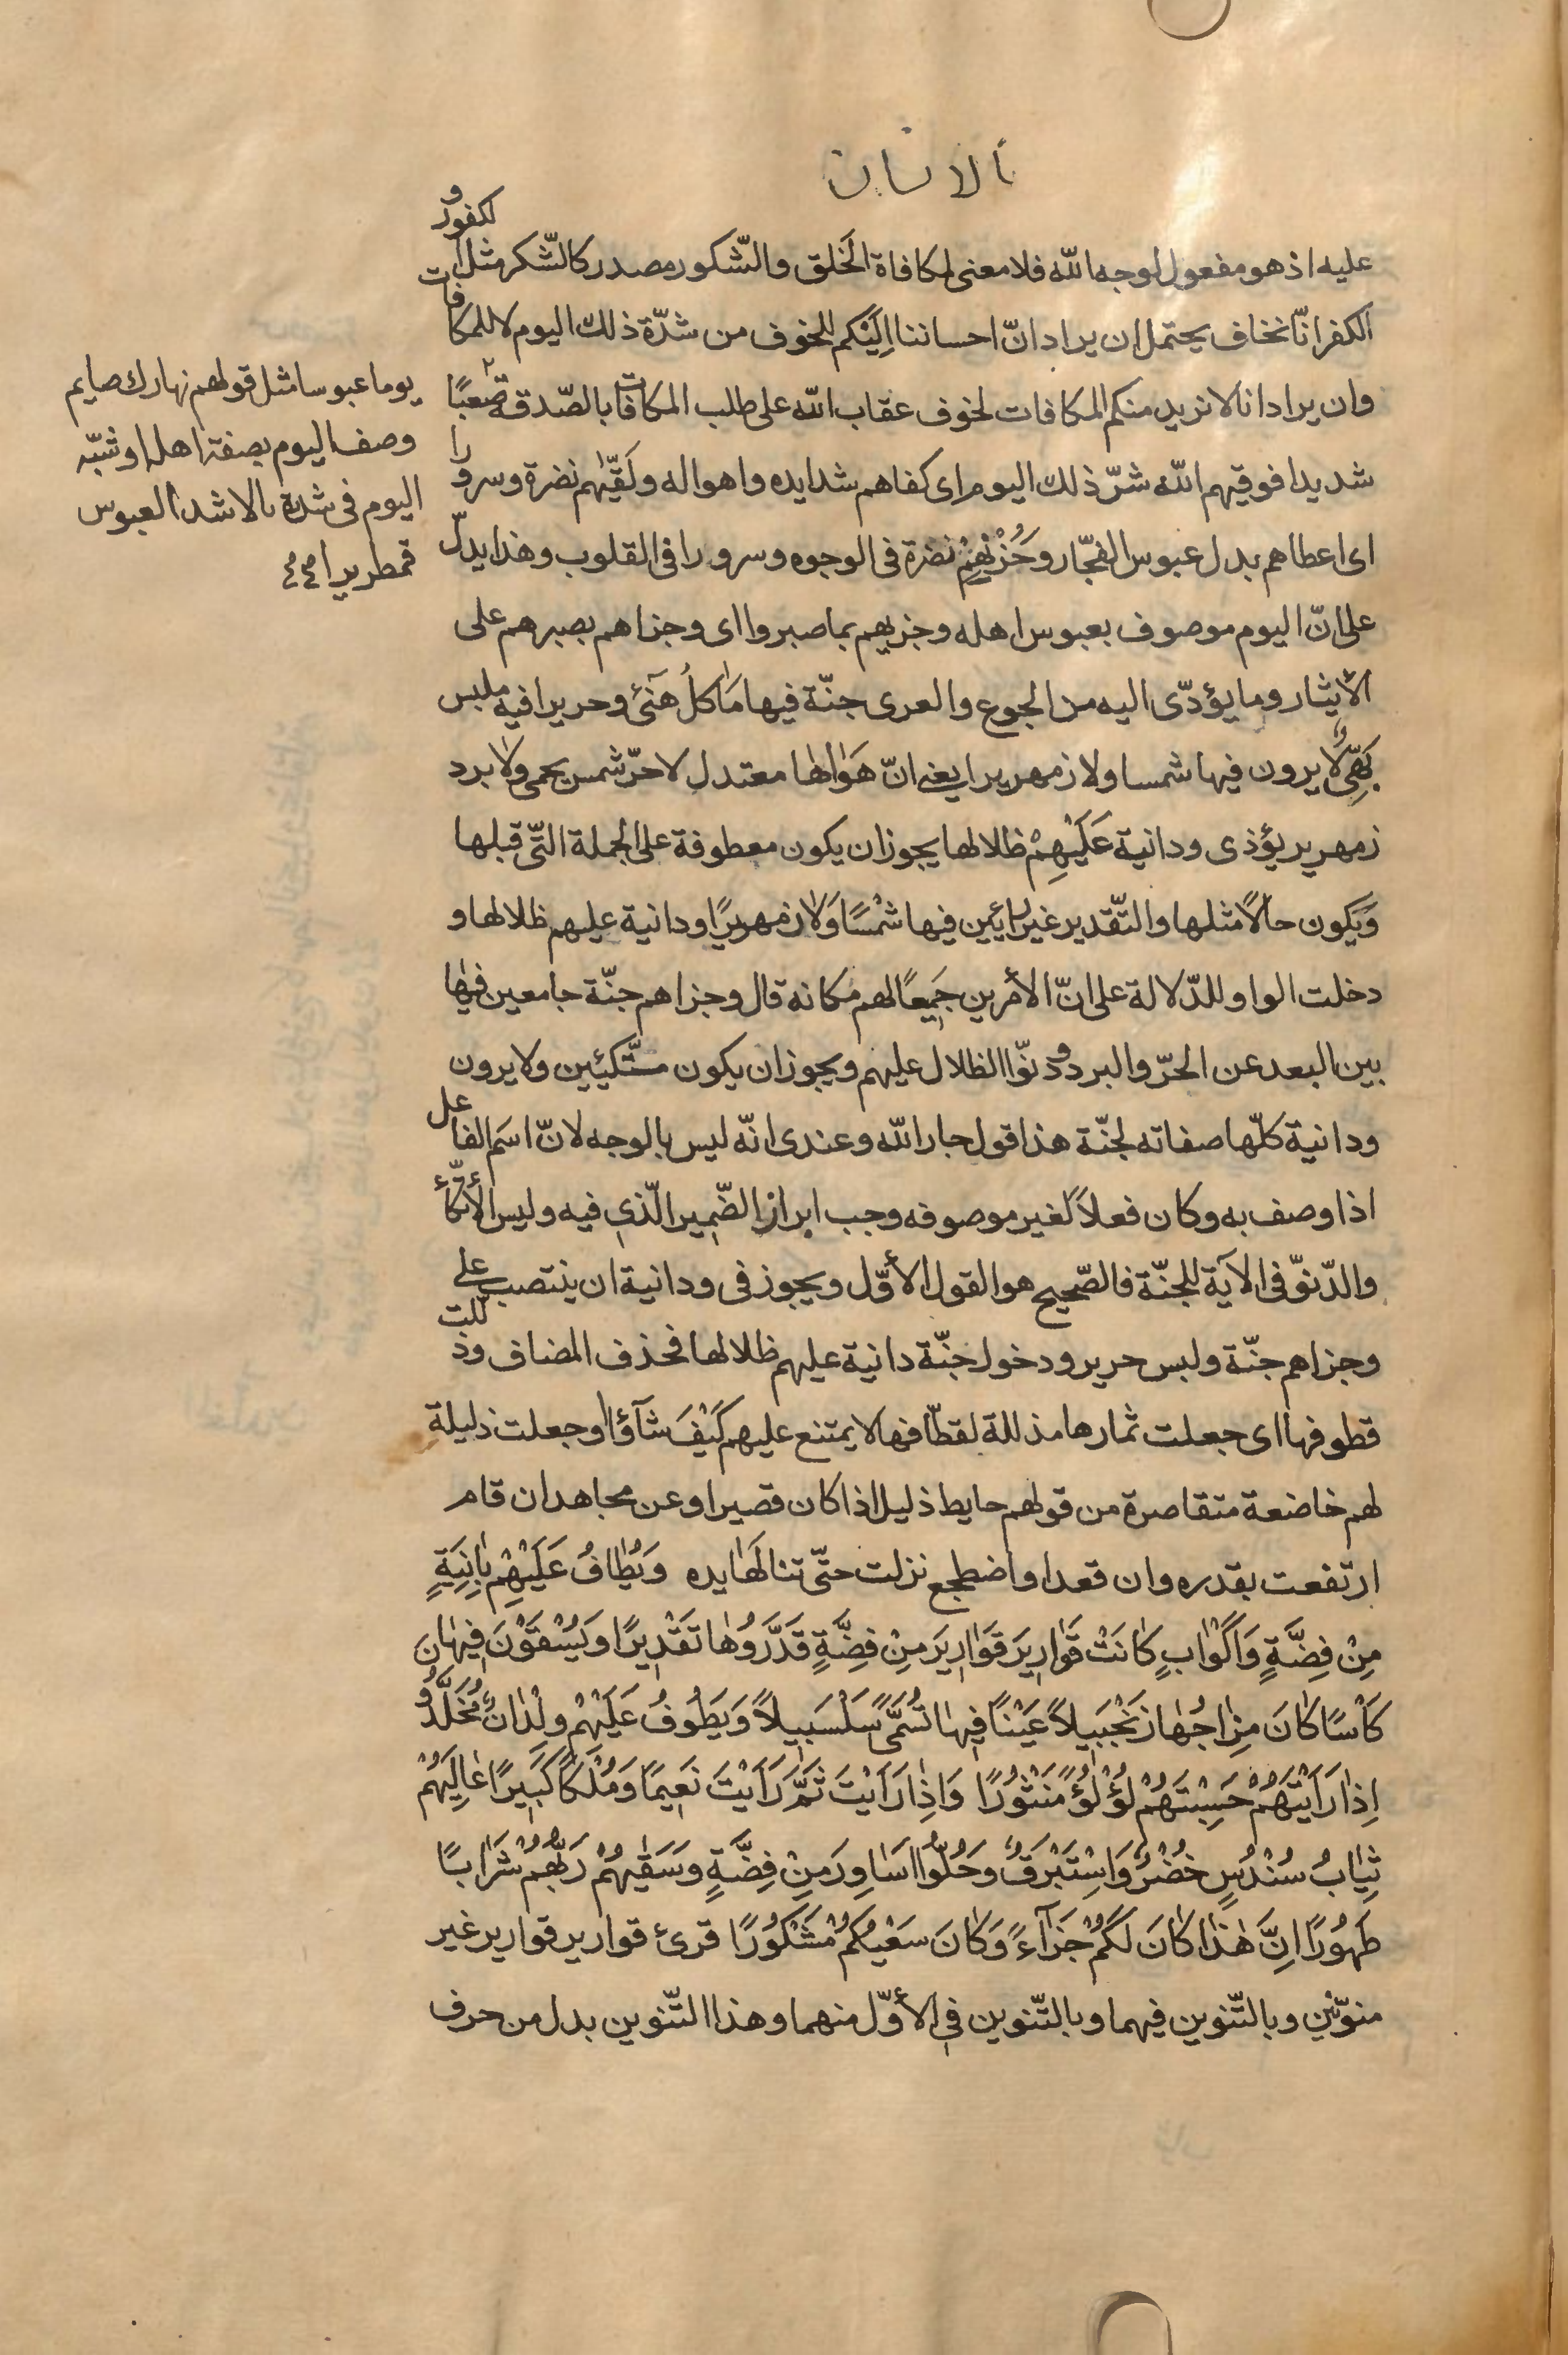 الانسان
عليه اذ هو مفعول لوجه الله فلا معنى لمكافاة الخلق والشّكور مصدر كالشّكر مثل الكفور و
الكفر انّا نخاف يحتمل ان يراد انّ احساننا اِلَيْكم للخوف من شدّة ذلك اليوم لا للمكافات
وان يراد انا لا نريد منكم المكافات لخوف عقاب الله على طلب المكافات بالصّدقة صعبًا
شديدا فوقيهم الله شرّ ذلك اليوم اى كفاهم شدايده واهواله ولَقّيٰهم نضرة وسرورا
اى اعطاهم بدل عبوس الفجّار وحُزْنِهِمْ نضرة فى الوجوه وسرورا فى القلوب وهذا يدلّ
على انّ اليوم موصوف بعبوس اهله وجزيهم بما صبروا اى وجزاهم بصبرهم على
الأيثار وما يؤدّى اليه من الجوع والعرى جنّة فيها مَاكلُ هَنَئ وحريرا فيه ملبس
بَهِىّ لا يرون فيها شمسا ولا زمهريرا يعنى انّ هَوٰاها معتدل لا حرّ شمس يحمى ولا برد
زمهرير يؤذى ودانية عَلَيْهِمْ ظلالها يجوز ان يكون معطوفة على الجملة التّى قبلها
وَيكون حالًا مثلها والتّقدير غير رائين فيها شمْسًا وَلا زمهريرًا ودانية عليهم ظلالها و
دخلت الواو للدّلالة على انّ الأمرين جَمِيعًا لهم مكانه قال وجزاهم جنّة جامعين فيها
بين البعد عن الحرّ والبرد ودنوّا الظلال عليهم ويجوز ان يكون متّكئين ولا يرون
ودانية كلّها صفاته لجنّة هذا قول جار الله وعندى انّه ليس بالوجه لانّ اسَم الفاعل
اذا وصف به وكان فعلاً لغير موصوفه وجب ابراز الضّمير الّذى فيه وليس الأتّكأ
والدّنوّ فى الآية للجنّة فالصّحيح هو القول الأوّل ويجوز فى ودانية ان ينتصب على
وجزاهم جنّة ولبس حرير ودخول جنّة دانية عليهم ظلالها فحذف المضاف وذللت
قطوفها اى جعلت ثمارها مذللة لقطّافها لا يمتنع عليهم كَيْفَ شآؤا او جعلت ذليلة
لهم خاضعة متقاصرة من قولهم حايط ذليل اذا كان قصيرا وعن مجاهد ان قام
ارتفعت بقدره وان قعد او اضطجع نزلت حتّى تنالهَا يده وَيُطٰافُ عَلَيْهِمْ بِاٰنِيَةٍ
مِنْ فِضَّةٍ وَاَكْوٰابٍ كٰانَتْ قَوٰارِيرَ قَوٰارِيرَ مِنْ فِضَّةٍ قَدَّرَوُهٰا تَقْدِيرًا ويُسْقَوْنَ فِيهٰا
كَاْسًا كٰانَ مِزٰاجُهٰا زَنْجَبِيلاً عَيْنًا فِيهٰا تُسَمّىٰ سَلْسَبِيلاً وَيَطُوفُ عَلَيْهِمْ وِلْدٰانٌ مُخَلَّدُونَ
اِذٰا رَاَيْتَهُمْ حَسِبْتَهُمْ لُؤْلُؤًا مَنْثُورًا وَاِذٰا رَاَيْتَ ثَمَّ رَاَيْتَ نَعِيمًا وَمُلْكًا كَبِيرًا عٰالِيَهُمْ
ثِيٰابُ سُنْدُسٍ خُضْرٌ وَاِسْتَبْرَقٌ وَحُلُّوا اَسٰاوِرَ مِنْ فِضَّةٍ وسَقٰيهُمْ رَبُّهُمْ شَرٰابًا
طَهُورًا اِنَّ هٰذٰا كٰانَ لَكُمْ جَزٰآءً وَكٰانَ سَعْيُكُمْ مَشْكُورًا قرئ قوارير قوارير غير
منوّنين وبالتّنوين فيهما وبالتّنوين فى الأوّل منهما وهذا التّنوين بدل من حرف
يوما عبوسا مثل قولهم نهارك صايم
وصف اليوم بصفة اهله او شبّه
اليوم فى شدّته بالاشد العبوس
قمطريرا